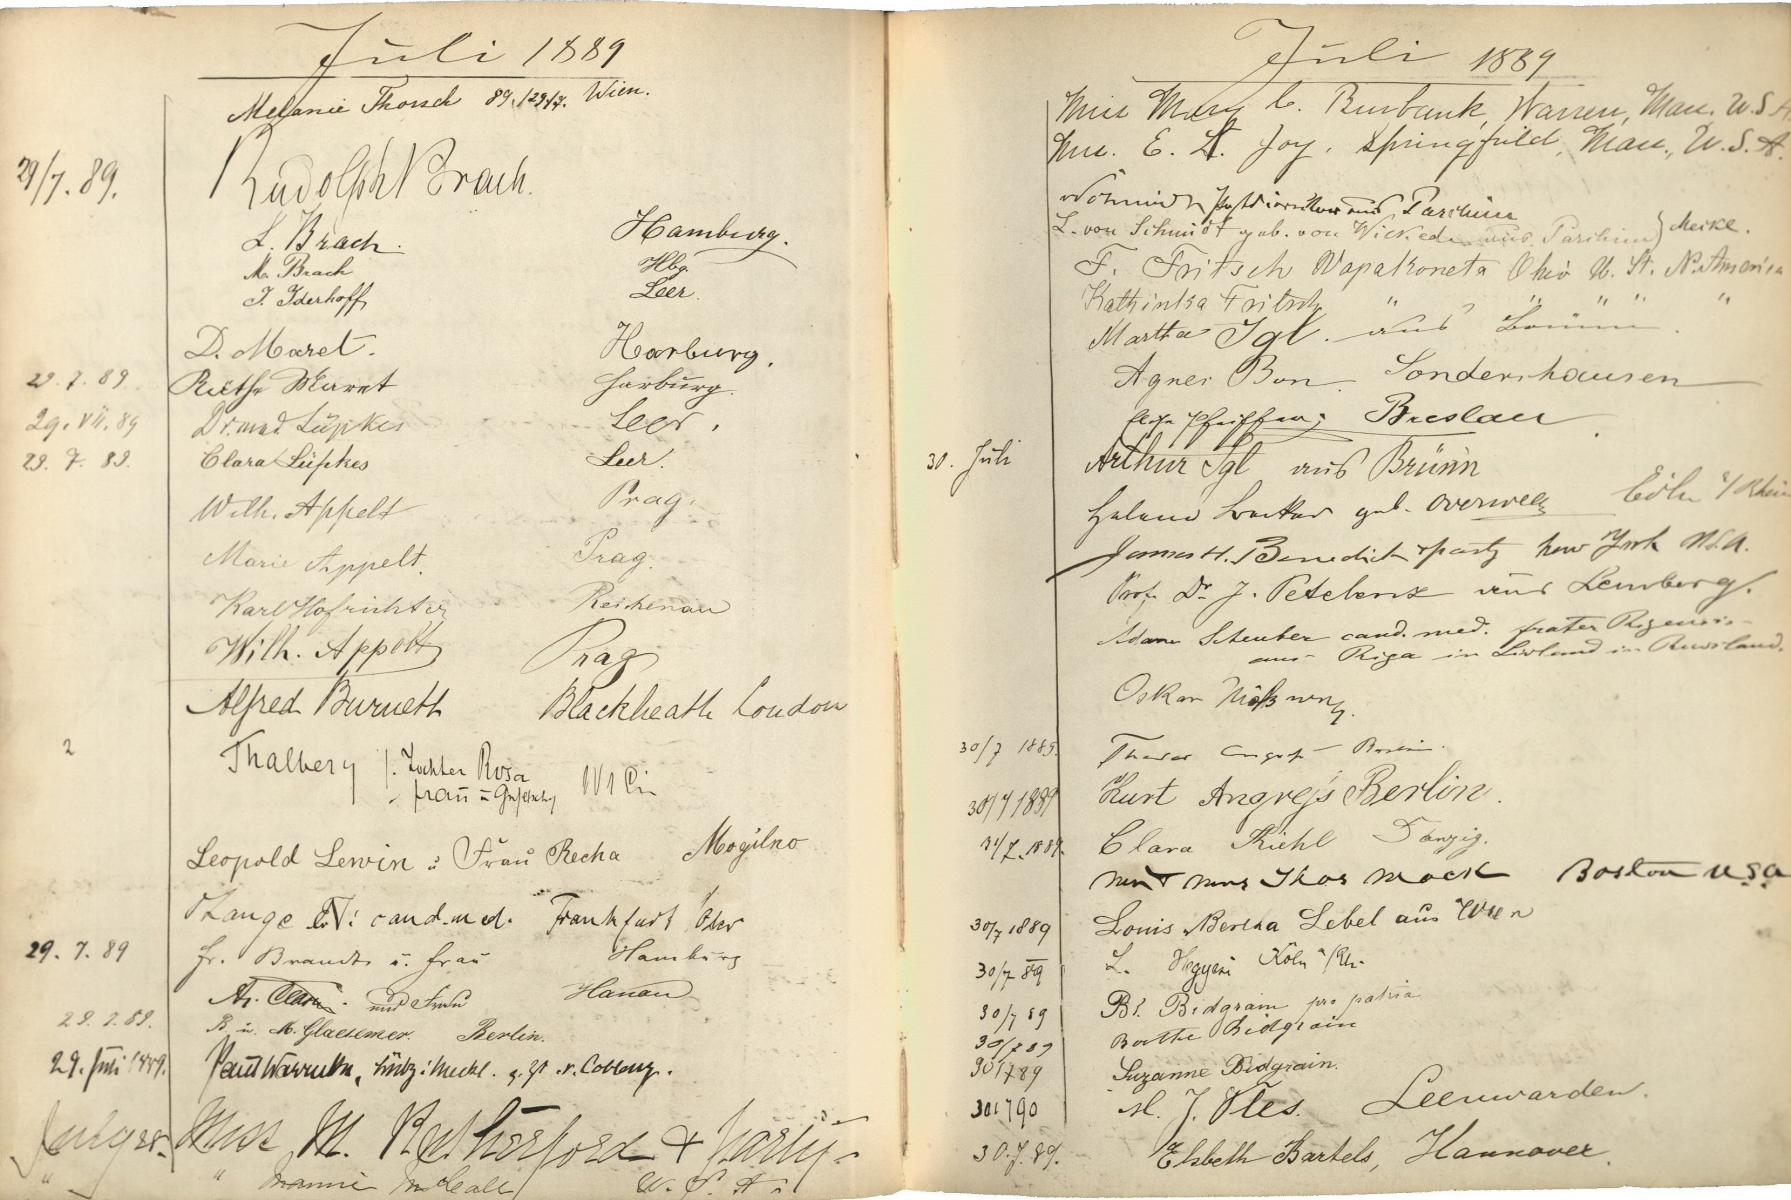 Juli 1889
Melanie Thorsch 89./29/7. Wien.
29/7. 89. Rudolph Brach.
L. Brach. Hamburg.
M. Brach Hbg.
J. Iderhoff Leer.
D. Maret. Harburg.
29. 7. 89 Käthe Maret Harburg.
29. VII. 89 Dr. med Lüpkes Leer.
29. 7. 89. Clara Lüpkes Leer.
Wilh. Appelt Prag.
Marie Appelt. Prag.
Karl Hofrichter Reichenau
Wilh. Appelt Prag
Alfred Burnett Blackheath London
2 Thalberg Tochter Rosa
Frau u Wien
Leopold Lewin u. Frau Recha Mogilno
Lange cand. med. Frankfurt Oder
29. 7. 89 Fr. Brandt u. Frau Hamburg
und Frau Hanau
29. 7. 89. B. u. M. Glaesemer. Berlin.
29. Juli 1889. Paul
Miss M. Rutherford & Party
" " Mannie McCall U. S. A.
Juli 1889
Miss Mary C. Burbank, Warren, Mass. U.S.A.
Miss. E. L. Joy. Springfield, Mass., U.S.A.
aus Parchim
L. von Schmidt geb. von Wickede aus Parchim } Meckl.
F. Fritsch Wapakoneta Ohio U. St. N. America
Kathinka Fritsch " " " " "
Martha Igl. aus Brünn.
Agnes Bon. Sondershausen
Pfeiffer Breslau
30. Juli Arthur Igl aus Brünn
Helene geb. Overweg Cöln a/Rhein
James H. Benedict & party New York U.S.A.
Prof. Dr. J. Petelenz aus Lemberg.
Adam Scheuber cand. med. frater Rigensis
aus Riga in Livland in Russland.
Oskar
30/7 1889. August
30/7 1889 Kurt Angrejs Berlin.
31/7. 1889. Clara Kiehl Danzig.
Mr & Mrs Thos Mack Boston U.S.A
30/7 1889 Louis Bertha Lebel aus Wien
30/7 89 L. Hegyesi Köln a/Rh.
30/7 89 Bt. Bidgrain pro patria
30/7 89 Berthe Bidgrain
30/7 89 Suzanne Bidgrain.
30/7 90 M. J. Vles. Leeuwarden.
30. 7. 89. Elsbeth Bartels, Hannover.